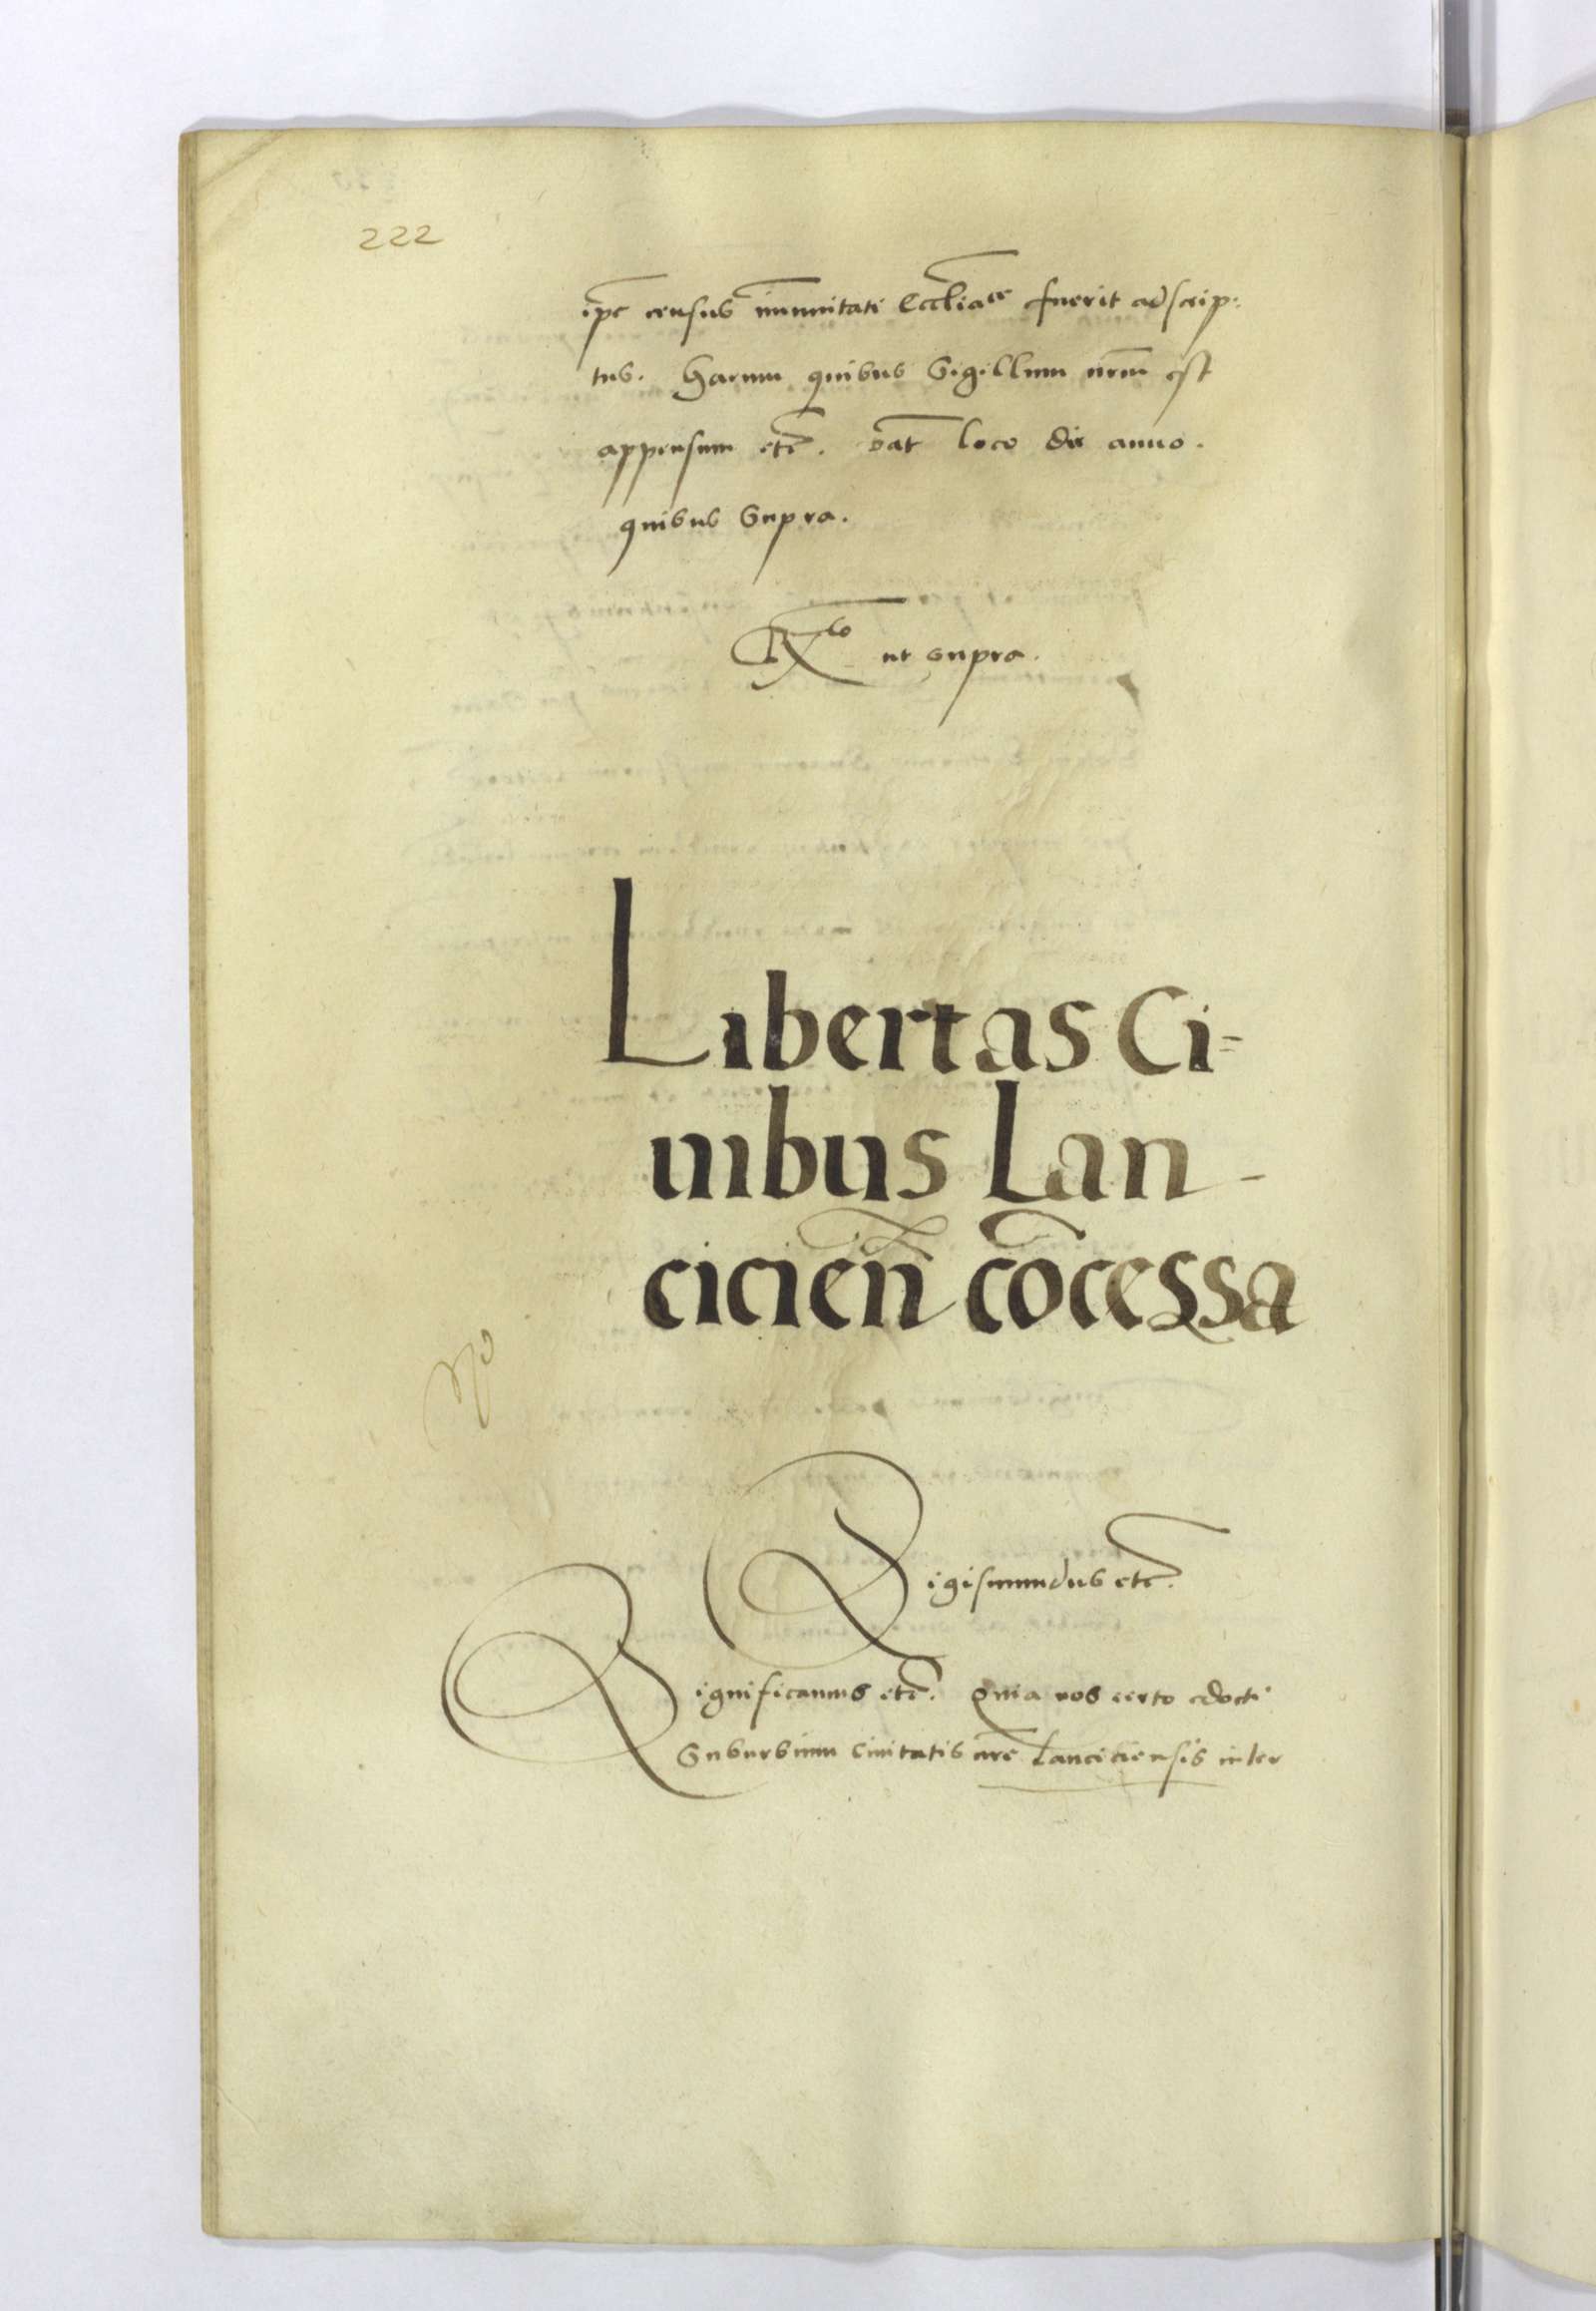 222
ip̄e census im̄unitati Eccl̄iace fuerit adscrip:
tus. Harum quibus Sigillum nr̄m est
appensum etc̄. Dat̄ loco die anno.
quibus Supra.
ut supra.
Libertas Ci=
uibus Lan-
cicien̄ cōcessa
Sigismundus etc̄.
Significamus etc̄. Quia nos certo edocti
Suburbium Ciuitatis nr̄e Lanciciensis inter